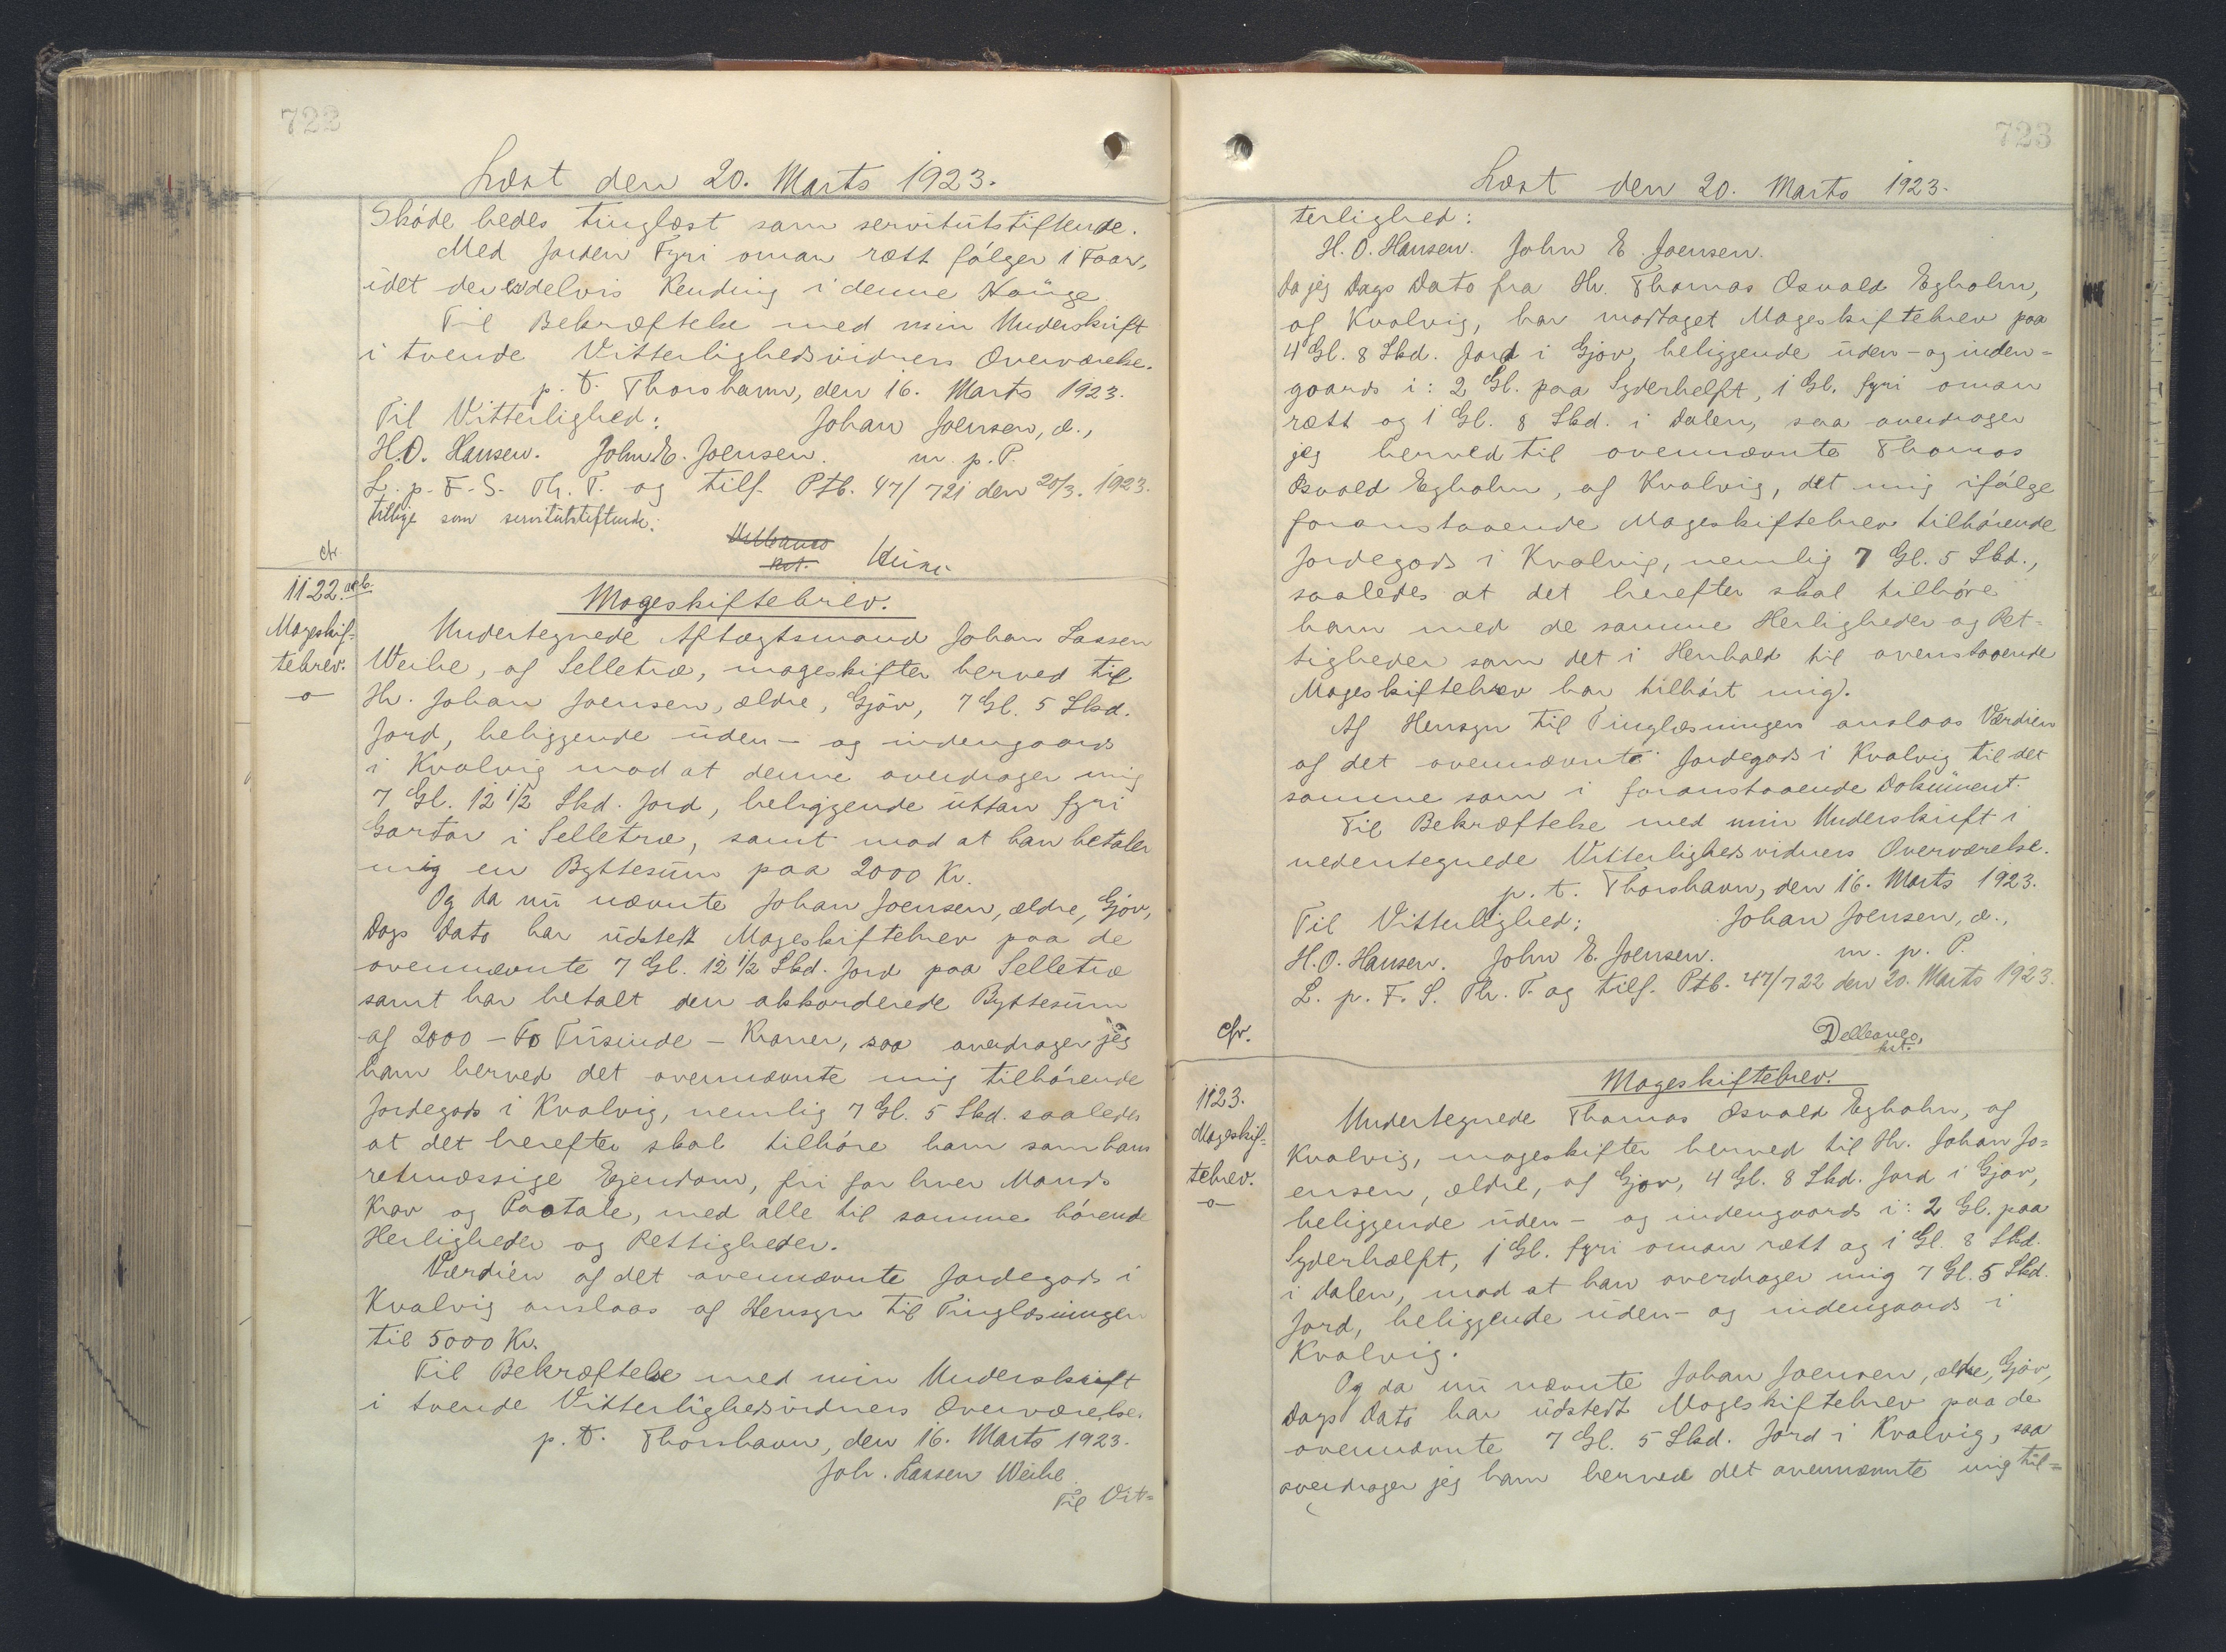 722
Læst den 20. Marts 1923.
Skøde bedes tinglæst som servitutstiftende.
Med Jorden Fyri oman rætt følger 1 Faar,
idet der delvis Kending i denne Hauge.
Til Bekræftelse med min Underskrift
i tvende Vitterlighedsvidners Overværelse.
p. t. Thorshavn, den 16. Marts 1923.
Til Vitterlighed: Johan Joensen, æ.,
H.O. Hansen. John E. Joensen. m. p. P.
L. p. F. S. Th. T. og tilf. Ptb. 47/721 den 20/3. 1923.
tillige som servitutstiftende.
cfr
1122. ab.
Mageskif-
tebrev.
Mageskiftebrev.
Undertegnede Aftægtsmand Johan Lassen
Weihe, af Selletræ, mageskifter herved til
Hr. Johan Joensen, ældre, Gjov, 7 Gl. 5 Skd.
Jord, beliggende uden- og indengaards
i Kvalvig mod at denne overdrager mig
7 Gl. 12 1/2 Skd. Jord, beliggende uttan fyri
Gartar i Selletræ, samt mod at han betaler
mig en Byttesum paa 2000 Kr.
Og da nu nævnte Johan Joensen, ældre, Gjov,
Dags Dato har udstedt Mageskiftebrev paa de
ovennævnte 7 Gl. 12 1/2 Skd. Jord paa Selletræ
samt har betalt den akkorderede Byttesum
af 2000 - To Tusinde - Kroner, saa overdrager jeg
ham herved det ovennævnte mig tilhørende
Jordegods i Kvalvig, nemlig 7 Gl. 5 Skd. saaledes
at det herefter skal tilhøre ham som hans
retmæssige Ejendom, fri for hver Mands
Krav og Paatale, med alle til samme hørende
Herligheder og Rettigheder.
Værdien af det ovennævnte Jordegods i
Kvalvig anslaas af Hensyn til Tinglæsningen
til 5000 Kr.
Til Bekræftelse med min Underskrift
i tvende Vitterlighedsvidners Overværelse.
p. t. Thorshavn, den 16. Marts 1923.
Joh. Lassen Weihe.
Til Vit-
723
Læst den 20. Marts 1923.
terlighed:
H. O. Hansen. John E Joensen.
Da jeg Dags Dato fra Hr. Thomas Osvald Egholm,
af Kvalvig, har modtaget Mageskiftebrev paa
4 Gl. 8 Skd. Jord i Gjov, beliggende uden- og inden-
gaards i: 2 Gl. paa Syderhelft, 1 Gl. fyri oman
rætt og 1 Gl. 8 Skd. i Dalen, saa overdrager
jeg herved til ovennævnte Thomas
Osvald Egholm, af Kvalvig, det mig ifølge
foranstaaende Mageskiftebrev tilhørende
Jordegods i Kvalvig, nemlig 7 Gl. 5 Skd.,
saaledes at det herefter skal tilhøre
ham med de samme Herligheder og Ret-
tigheder som det i Henhold til ovenstaaende
Mageskiftebrev har tilhørt mig.
Af Hensyn til Tinglæsningen anslaas Værdien
af det ovennævnte Jordegods i Kvalvig til det
samme som i foranstaaende Dokument.
Til Bekræftelse med min Underskrift i
nedentegnede Vitterlighedsvidners Overværelse.
p. t. Thorshavn, den 16. Marts 1923.
Til Vitterlighed: Johan Joensen, æ.,
H. O. Hansen. John E. Joensen. m. p. P.
L. p. F. S. Th. T. og tilf. Ptb. 47/722 den 20. Marts 1923.
cfr.
Dellcanco,
kst.
1123.
Mageskif-
tebrev.
Mageskiftebrev.
Undertegnede Thomas Osvald Egholm, af
Kvalvig, mageskifter herved til Hr. Johan Jo-
ensen, ældre, af Gjov, 4 Gl. 8 Skd. Jord i Gjov,
beliggende uden- og indengaards i: 2 Gl. paa
Syderhælft, 1 Gl. fyri oman rætt og 1 Gl. 8 Skd.
i Dalen, mod at han overdrager mig 7 Gl. 5 Skd.
Jord, beliggende uden- og indengaards i
Kvalvig.
Og da nu nævnte Johan Joensen, ældre, Gjov,
Dags Dato har udstedt Mageskiftebrev paa de
ovennævnte 7 Gl. 5 Skd. Jord i Kvalvig, saa
overdrager jeg ham herved det ovennævnte mig til-